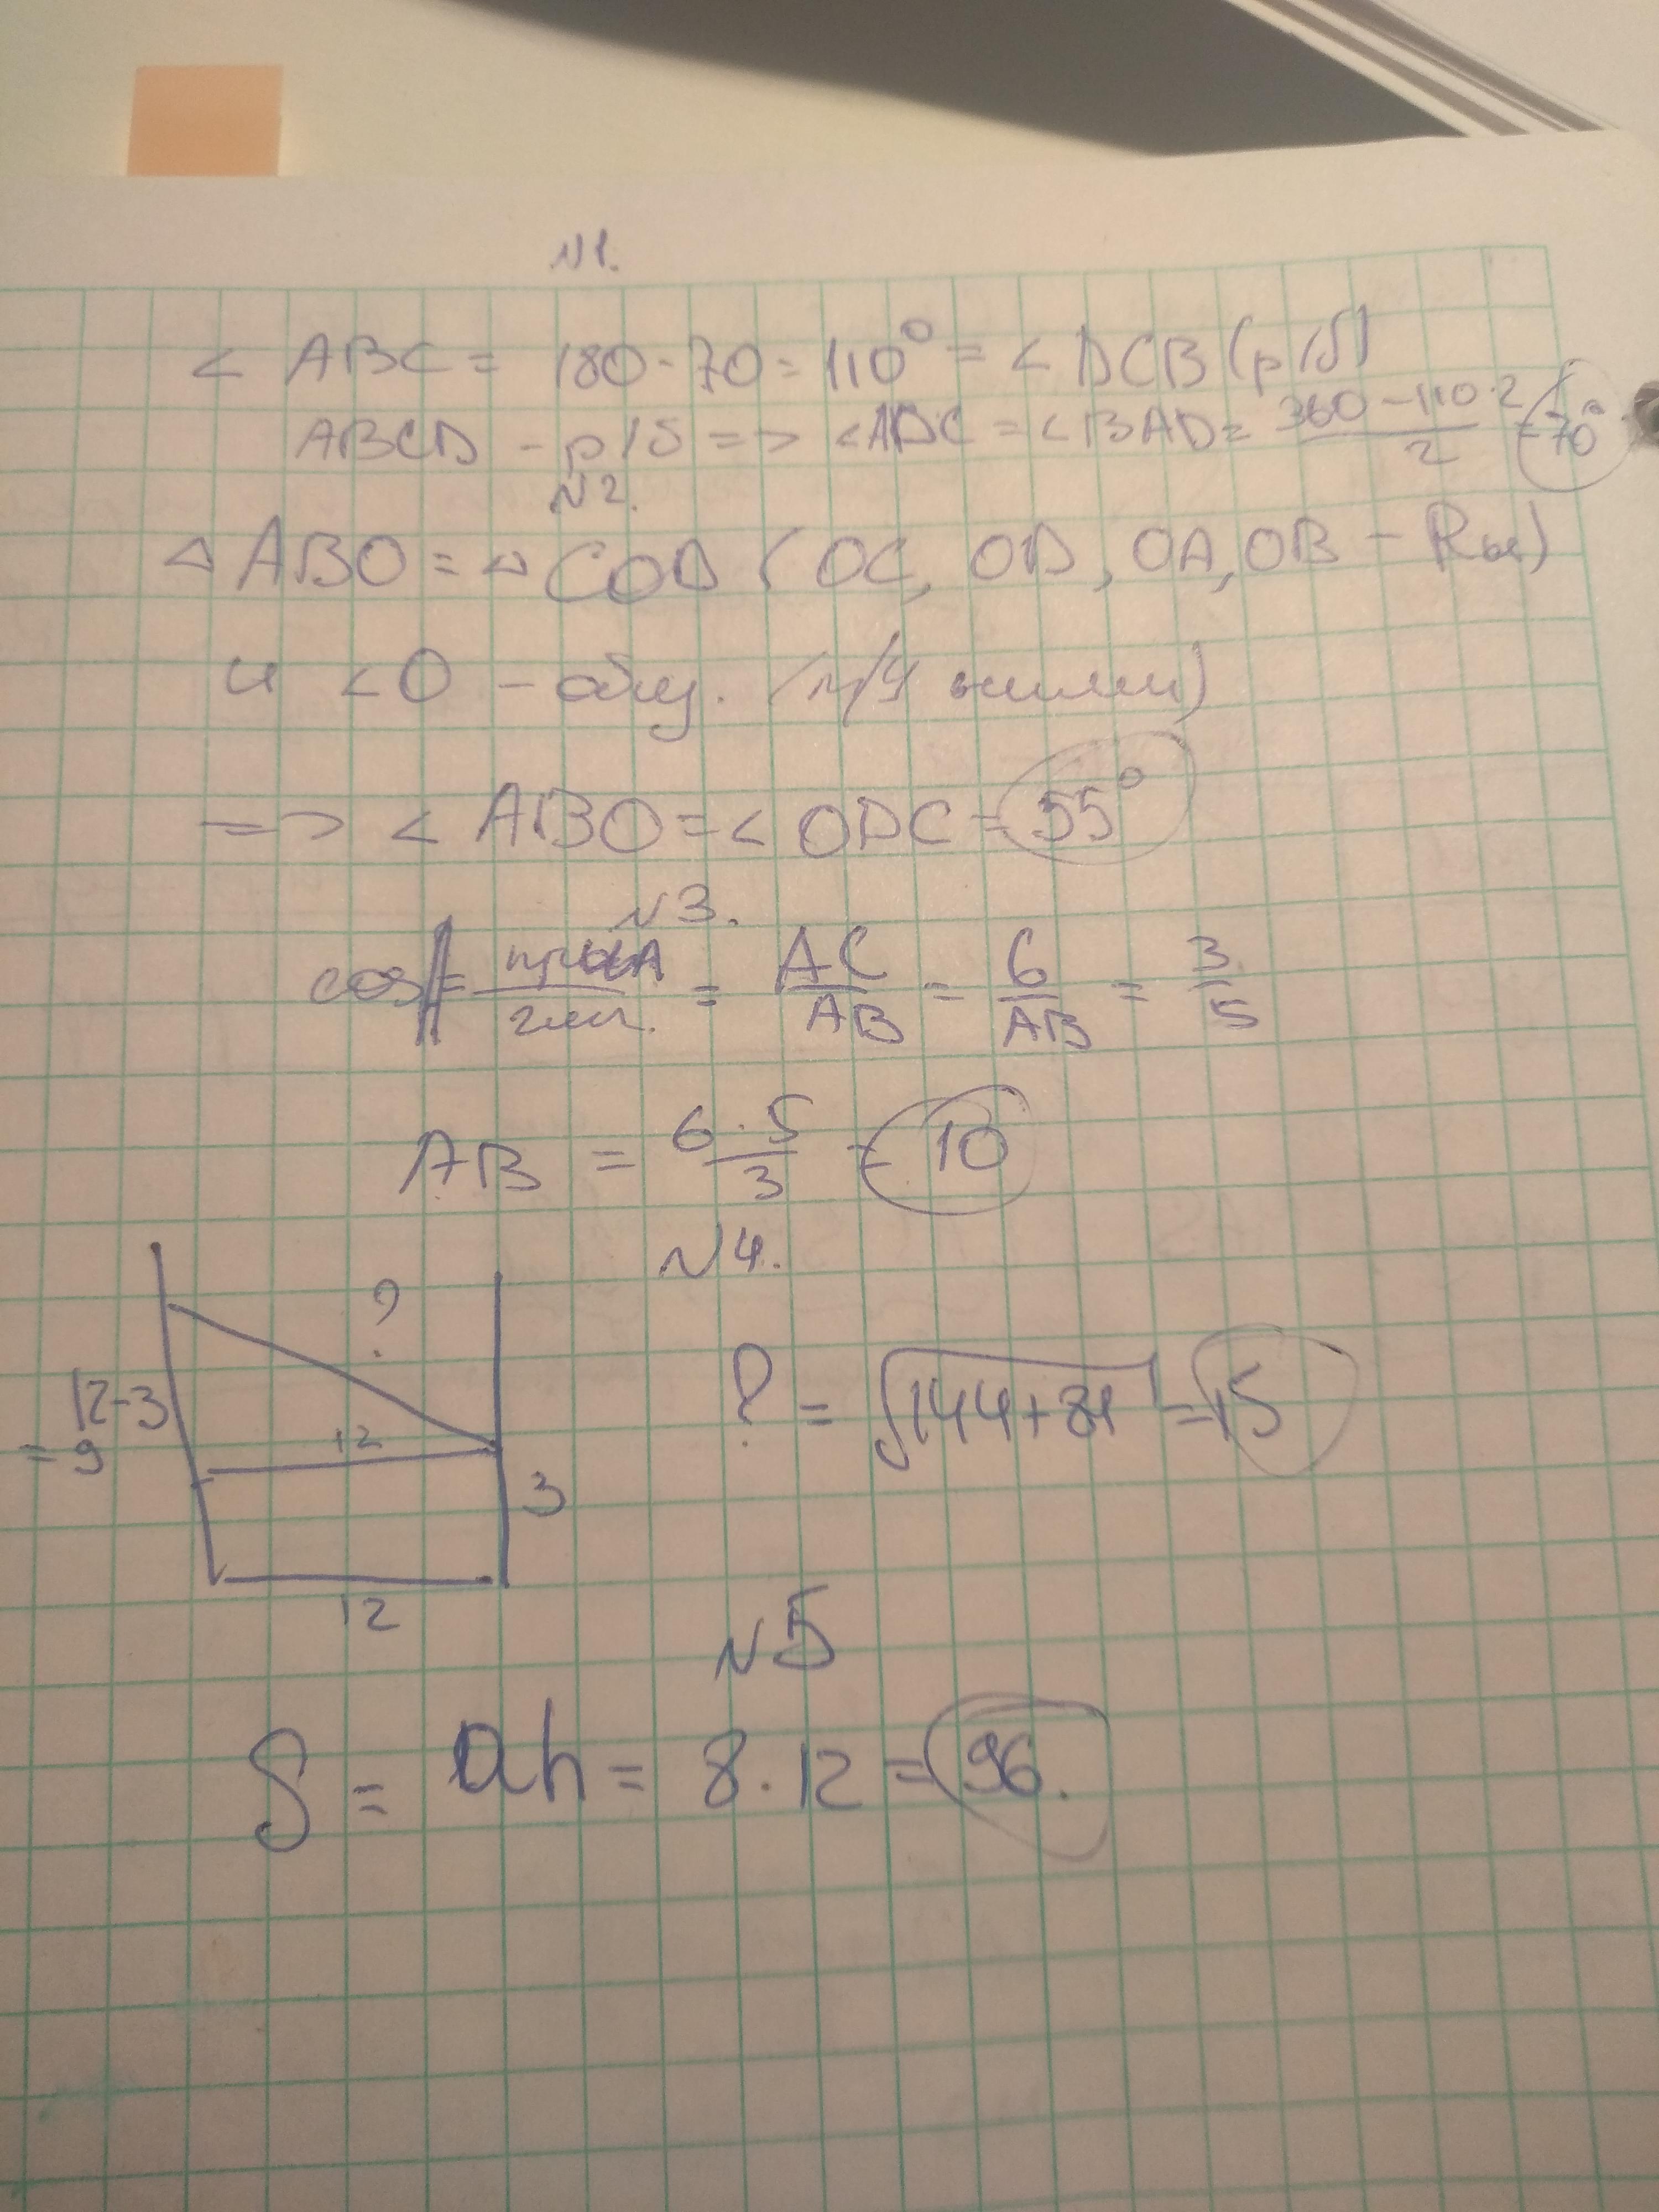 N1.
< ABC = 180 - 70 = 110° = < DCB (р/б)
ABCD - р/б => <ADC = <BAD = (360 - 110·2)/2 = 70°
N2.
△ ABO = △ COD (OC, OD, OA, OB - Rы)
и <O - общ. (м/у ними)
=> < ABO = < ODC = 55°
N3.
cosA = прил/гип. = AC/AB = 6/AB = 3/5
AB = 6·5/3 = 10
N4.
?
12-3
= 9
12
3
12
? = √144+81 = 15
N5
S = ah = 8·12 = 96.